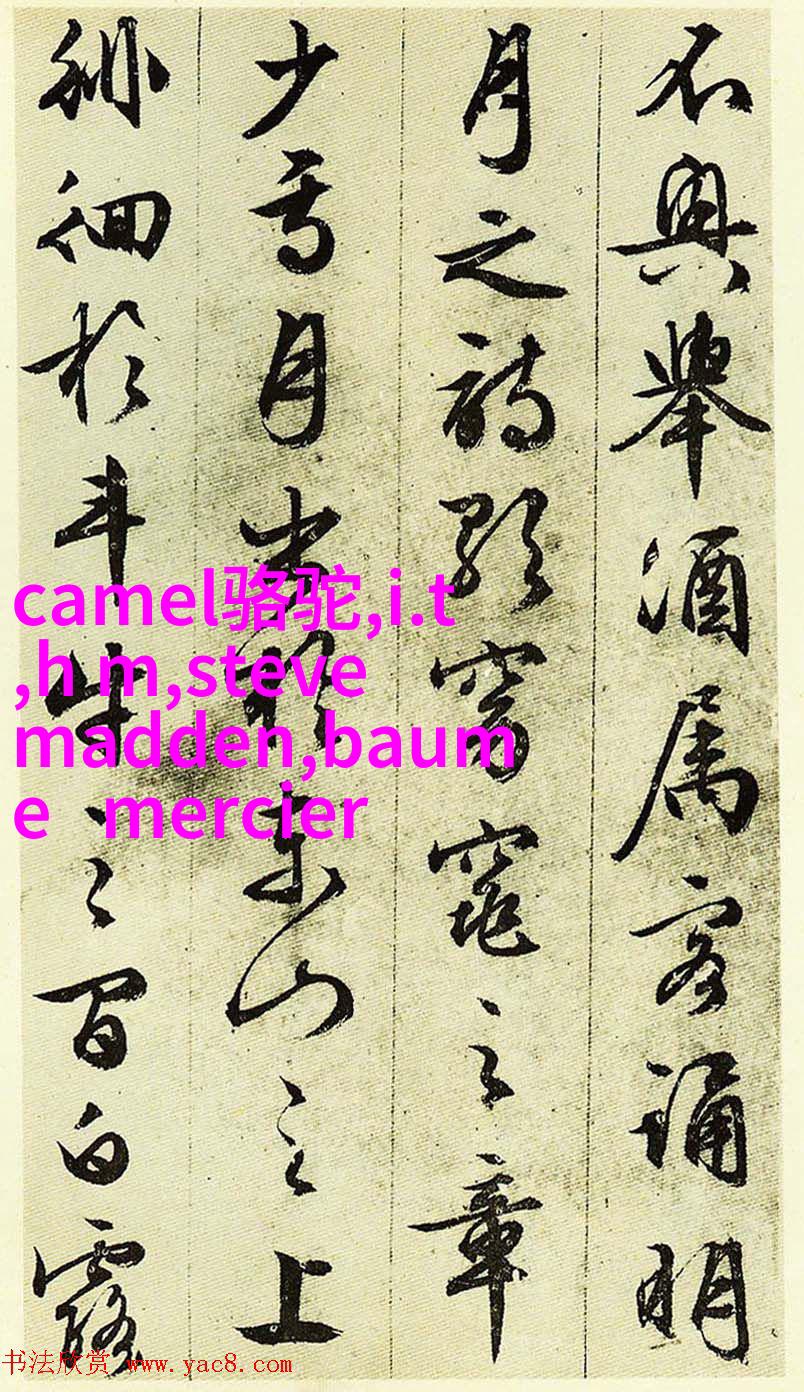 不興舉酒属客誦明
月之詩歌窈窕之章
少焉月出於東山之上
徘徊於斗牛之間白露
camel骆驼,i.t
,h m,steve
madden,baum
e mercier
书法欣赏 www.yac8.com